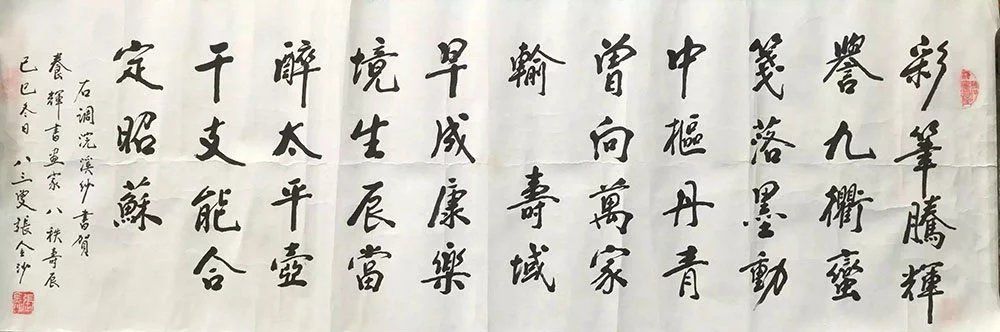 彩筆騰輝
譽九衢蠻
箋落墨動
中樞丹青
曾向萬家
輸壽域
早成康樂
境生辰當
醉太平壺
干支能合
定昭蘇
右調浣溪紗書賀
養輝書畫家八秩壽辰
己巳冬日八三叟張全沙